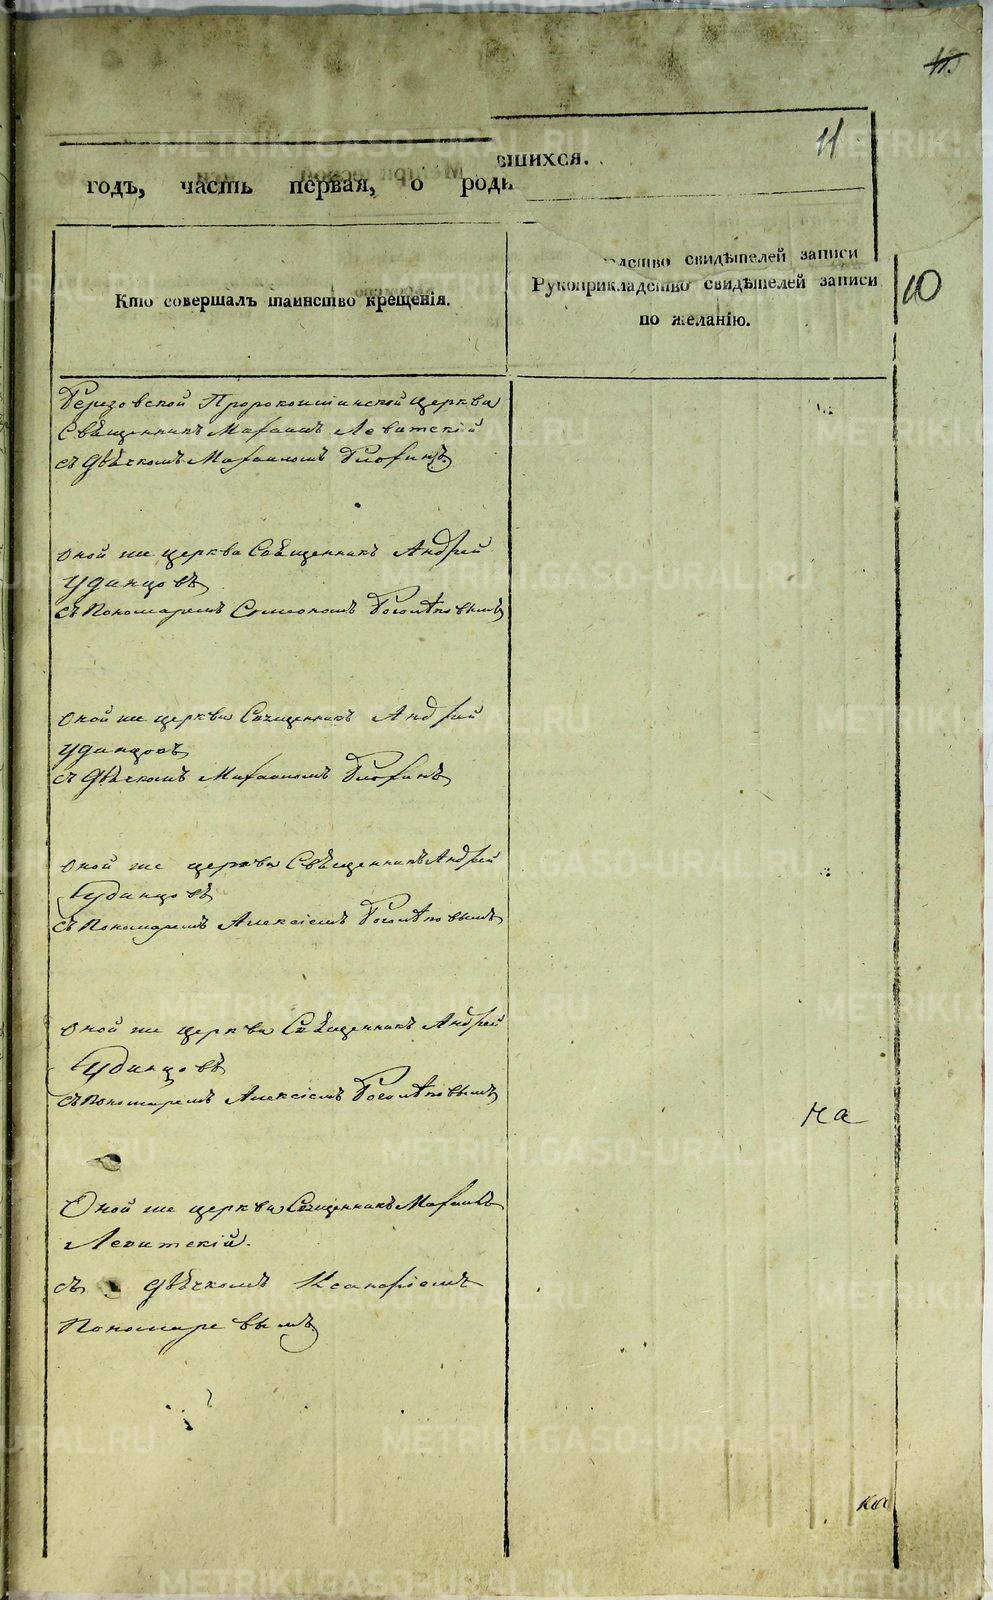 11
годъ, часть первая, о роди
вшихся.
Кто совершалъ таинство крещенія.
свидѣтелей записи
Рукоприкладство свидѣтелей записи
по желанію.
10
Березовской Пророкоильинской церкви
Священникъ Михаилъ Левитскій
съ Дьячкомъ Михаиломъ
оной же церкви Священникъ Андрей
Удинцовъ
съ Пономаремъ Симеономъ Боголѣповымъ
оной же церкви Священникъ Андрей
Удинцовъ
съ Дьячкомъ Михаиломъ
оной же церкви Священникъ Андрей
Удинцовъ
съ Пономаремъ Алексіемъ Боголѣповымъ
оной же церкви Священникъ Андрей
Удинцовъ
съ Пономаремъ Алексіемъ Боголѣповымъ
на
Оной же церкви Священникъ Михаилъ
Левитскій.
съ дьячкомъ
Пономаревымъ
METRIKI.GASO-URAL.RU